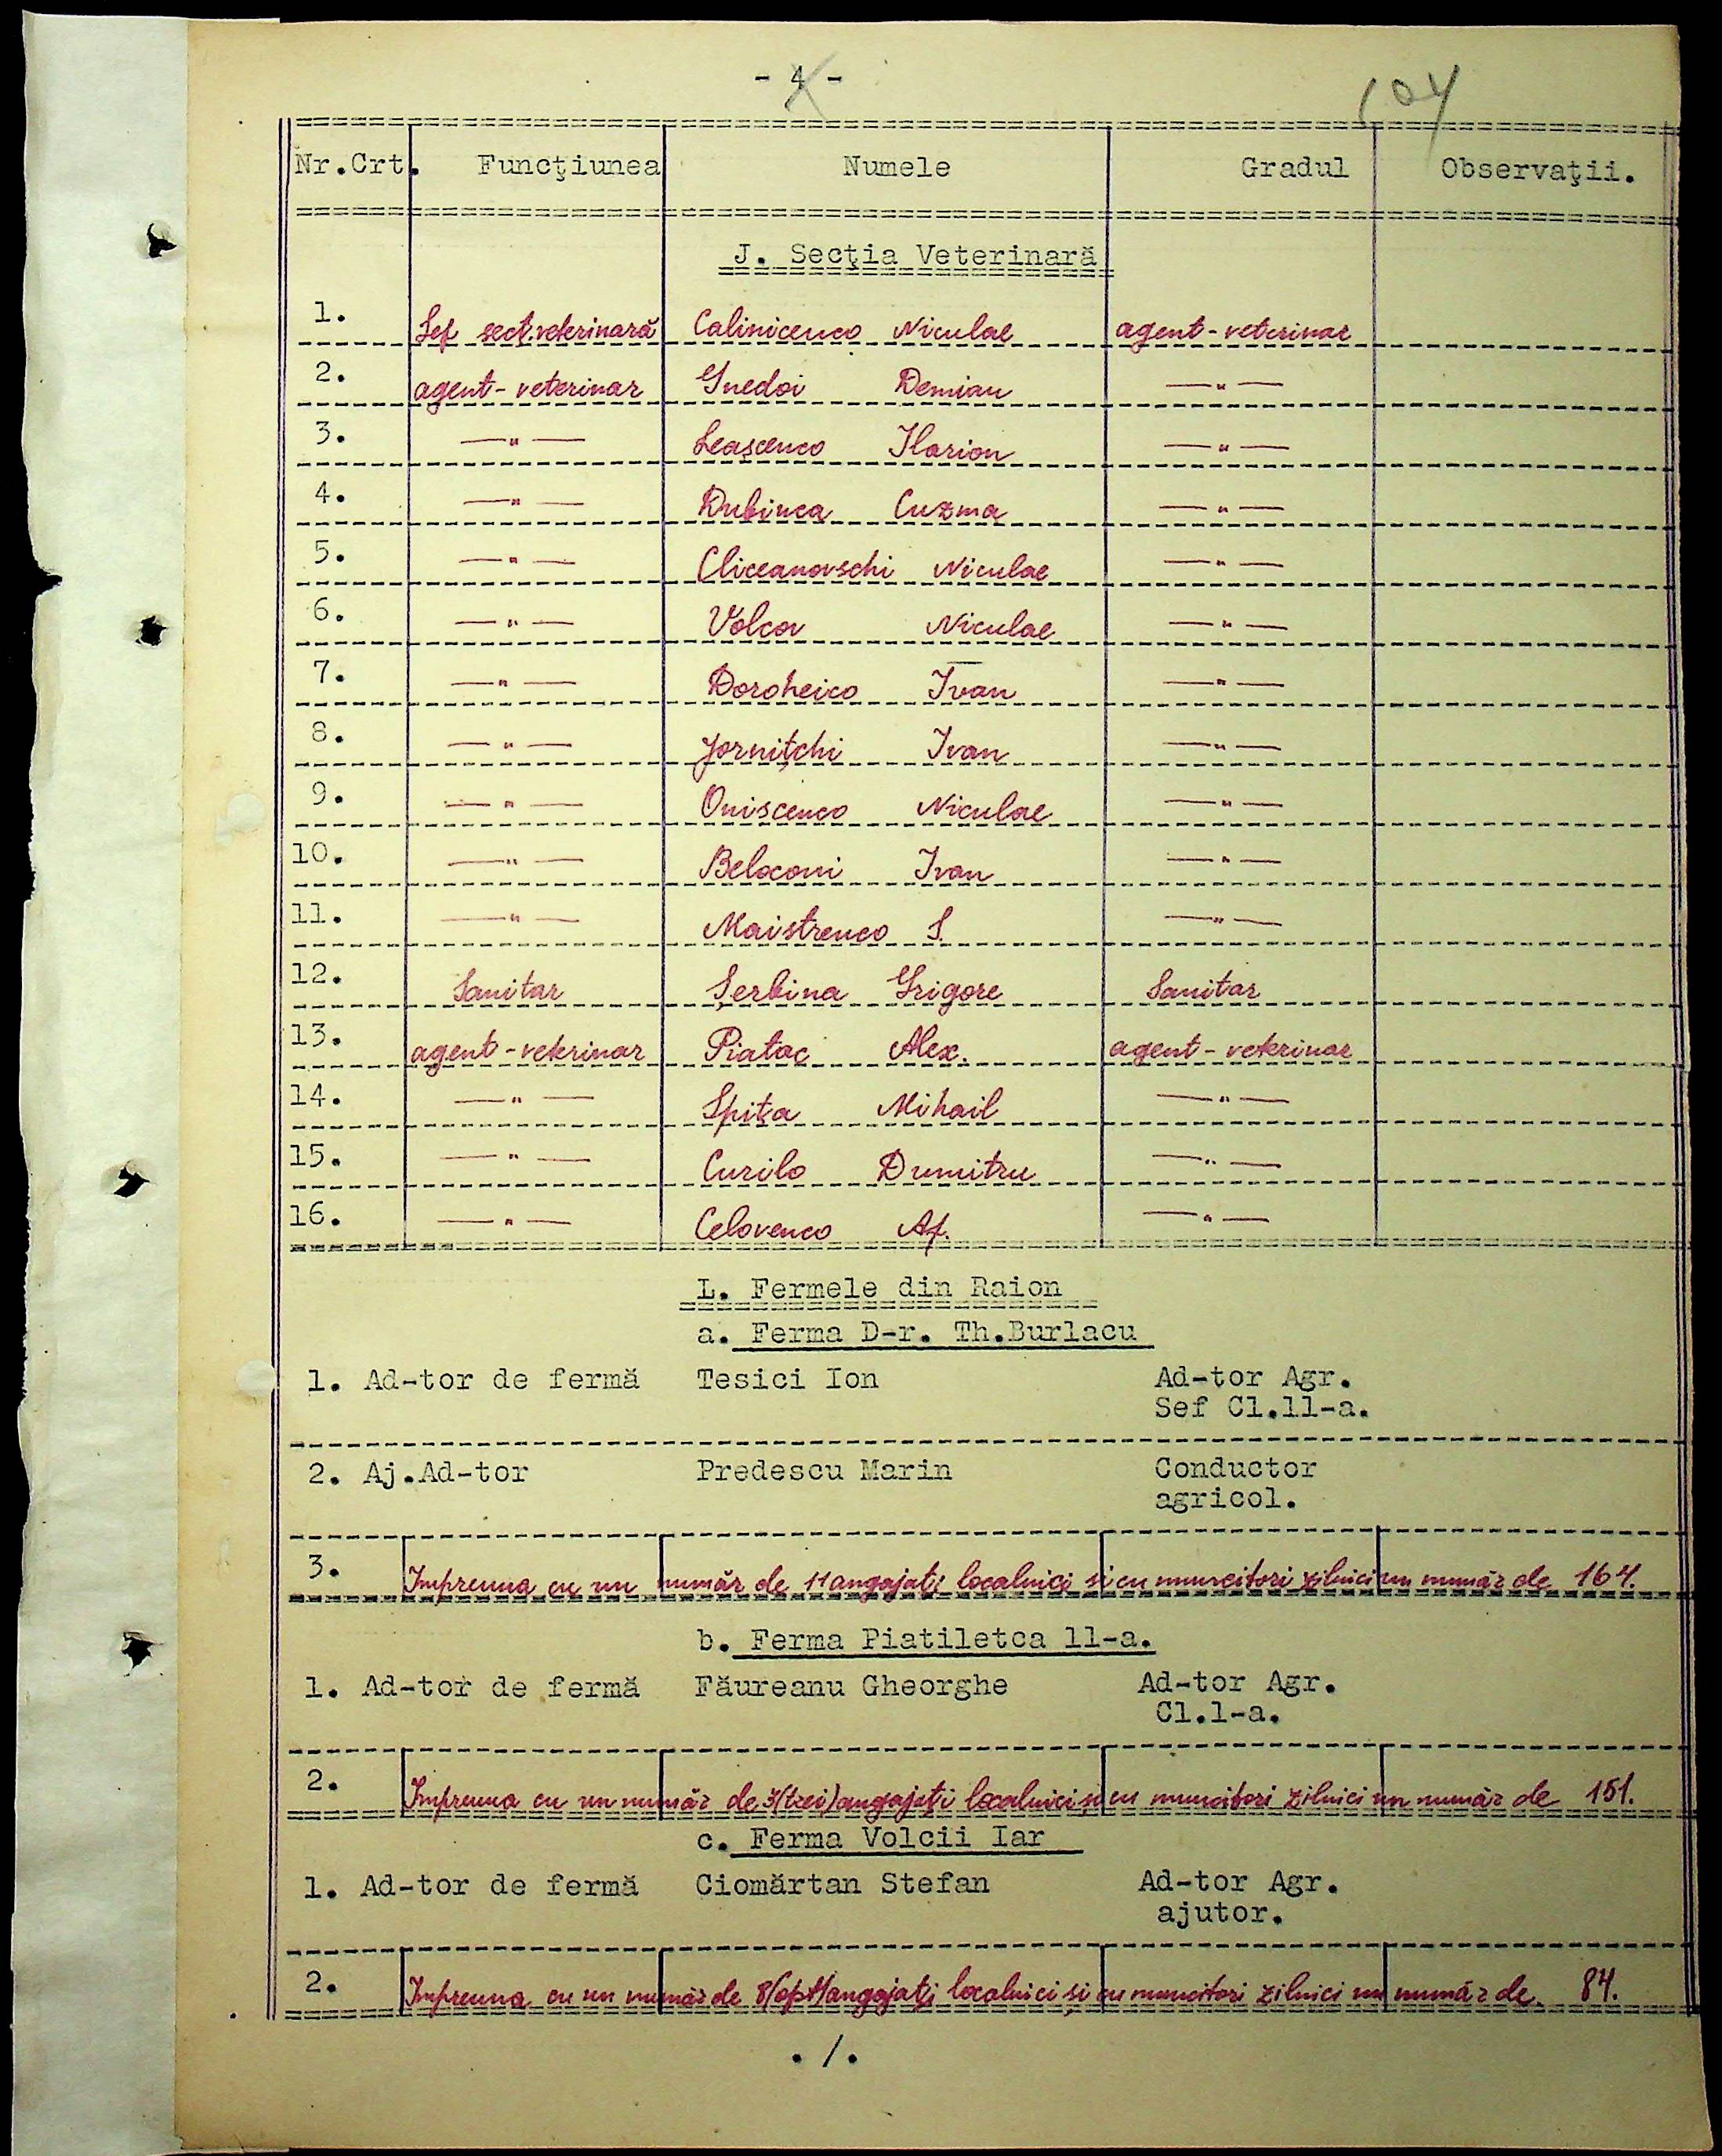 - 4 -
104
Nr.Crt. Funcţiunea Numele Gradul Observaţii.
J. Secţia Veterinară
1. Șef sect.veterinară Calinicenco Niculae agent-veterinar
2. agent-veterinar Gnedoi Demian —"—
3. —"— Leașcenco Ilarion —"—
4. —"— Dubinca Cuzma —"—
5. —"— Cliceanovschi Niculae —"—
6. —"— Volcov Niculae —"—
7. —"— Doroheico Ivan —"—
8. —"— Jornițchi Ivan —"—
9. —"— Oniscenco Niculae —"—
10. —"— Beloconi Ivan —"—
11. —"— Maistrenco S. —"—
12. Sanitar Șerbina Grigore Sanitar
13. agent-veterinar Piatac Alex. agent-veterinar
14. —"— Spița Mihail —"—
15. —"— Curilo Dumitru —"—
16. —"— Celovenco Af. —"—
L. Fermele din Raion
a. Ferma D-r. Th.Burlacu
1. Ad-tor de fermă Tesici Ion Ad-tor Agr.
Sef Cl.11-a.
2. Aj.Ad-tor Predescu Marin Conductor
agricol.
3. Impreuna cu un număr de 11 angajați localnici și cu muncitori zilnici un număr de 164.
b. Ferma Piatiletca 11-a.
1. Ad-tor de fermă Făureanu Gheorghe Ad-tor Agr.
Cl.1-a.
2. Impreuna cu un număr de 3(trei) angajați localnici și cu muncitori zilnici un număr de 151.
c. Ferma Volcii Iar
1. Ad-tor de fermă Ciomărtan Stefan Ad-tor Agr.
ajutor.
2. Impreuna cu un număr de 8(opt) angajați localnici și cu muncitori zilnici un număr de 84.
./.